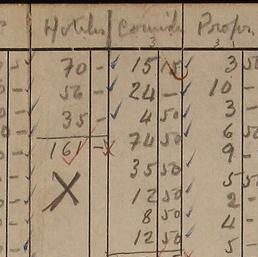 Hotiles Comida Propi.
70 - 15 15 3 50
56 - 24 - 10 -
35 - 4 50 3 -
74 50 6 50
161 - 35 50 9 -
X 12 50 5 50
8 50 2 -
12 50 4 -
5 -